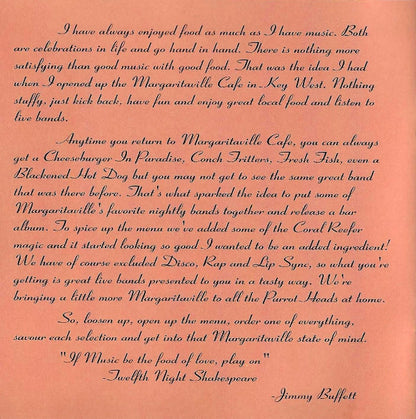 I have always enjoyed food as much as I have music. Both
are celebrations in life and go hand in hand. There is nothing more
satisfying than good music with good food. That was the idea I had
when I opened up the Margaritaville Cafe in Key West. Nothing
stuffy, just kick back, have fun and enjoy great local food and listen to
live bands.
Anytime you return to Margaritaville Cafe, you can always
get a Cheeseburger In Paradise, Conch Fritters, Fresh Fish, even a
Blackened Hot Dog but you may not get to see the same great band
that was there before. That's what sparked the idea to put some of
Margaritaville's favorite nightly bands together and release a bar
album. To spice up the menu we've added some of the Coral Reefer
magic and it started looking so good I wanted to be an added ingredient!
We have of course excluded Disco, Rap and Lip Sync, so what you're
getting is great live bands presented to you in a tasty way. We're
bringing a little more Margaritaville to all the Parrot Heads at home.
So, loosen up, open up the menu, order one of everything,
savour each selection and get into that Margaritaville state of mind.
"If Music be the food of love, play on"
-Twelfth Night Shakespeare
-Jimmy Buffett